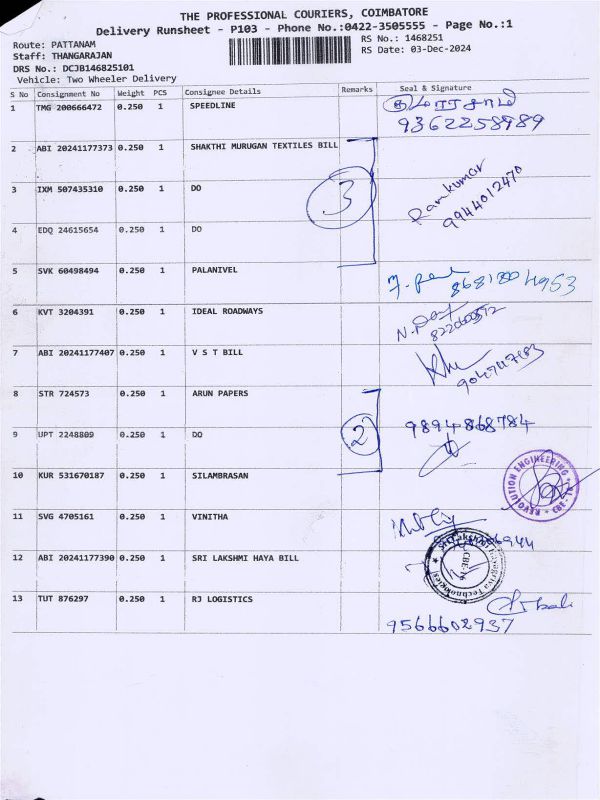 THE PROFESSIONAL COURIERS, COIMBATORE
Delivery Runsheet - P103 - Phone No.:0422-3505555 - Page No.:1
Route: PATTANAM RS No.: 1468251
Staff: THANGARAJAN RS Date: 03-Dec-2024
DRS No.: DCJB146825101
Vehicle: Two Wheeler Delivery
S No Consignment No Weight PCS Consignee Details Remarks Seal & Signature
1 TMG 200666472 0.250 1 SPEEDLINE குமாரசாமி
9362258989
2 ABI 20241177373 0.250 1 SHAKTHI MURUGAN TEXTILES BILL
3 IXM 507435310 0.250 1 DO 3 Ramkumar
9944012470
4 EDQ 24615654 0.250 1 DO
5 SVK 60498494 0.250 1 PALANIVEL
6 KVT 3204391 0.250 1 IDEAL ROADWAYS
7 ABI 20241177407 0.250 1 V S T BILL
8 STR 724573 0.250 1 ARUN PAPERS
9894868784
9 UPT 2248809 0.250 1 DO 2
10 KUR 531670187 0.250 1 SILAMBRASAN REVOLUTION ENGINEERING
11 SVG 4705161 0.250 1 VINITHA
12 ABI 20241177390 0.250 1 SRI LAKSHMI HAYA BILL
13 TUT 876297 0.250 1 RJ LOGISTICS
9566602937